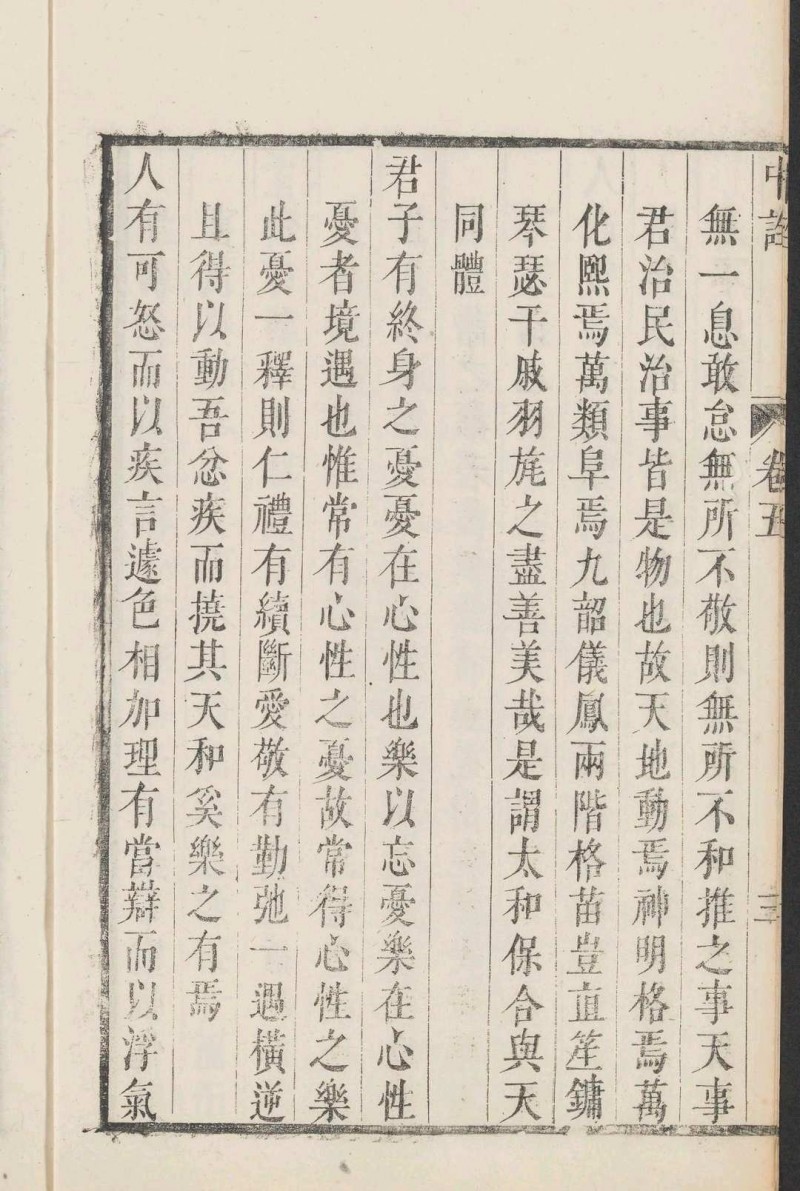 中詮 卷五 三
無一息敢怠無所不敬則無所不和推之事天事
君治民治事皆是物也故天地動焉神明格焉萬
化熙焉萬類阜焉九韶儀鳳兩階格苗豈直笙鏞
琴瑟干戚羽旄之盡善美哉是謂太和保合與天
同體
君子有終身之憂憂在心性也樂以忘憂樂在心性
憂者境遇也惟常有心性之憂故常得心性之樂
此憂一釋則仁禮有續斷愛敬有勤弛一遇橫逆
且得以動吾忿疾而撓其天和奚樂之有焉
人有可怒而以疾言遽色相加理有當辯而以浮氣